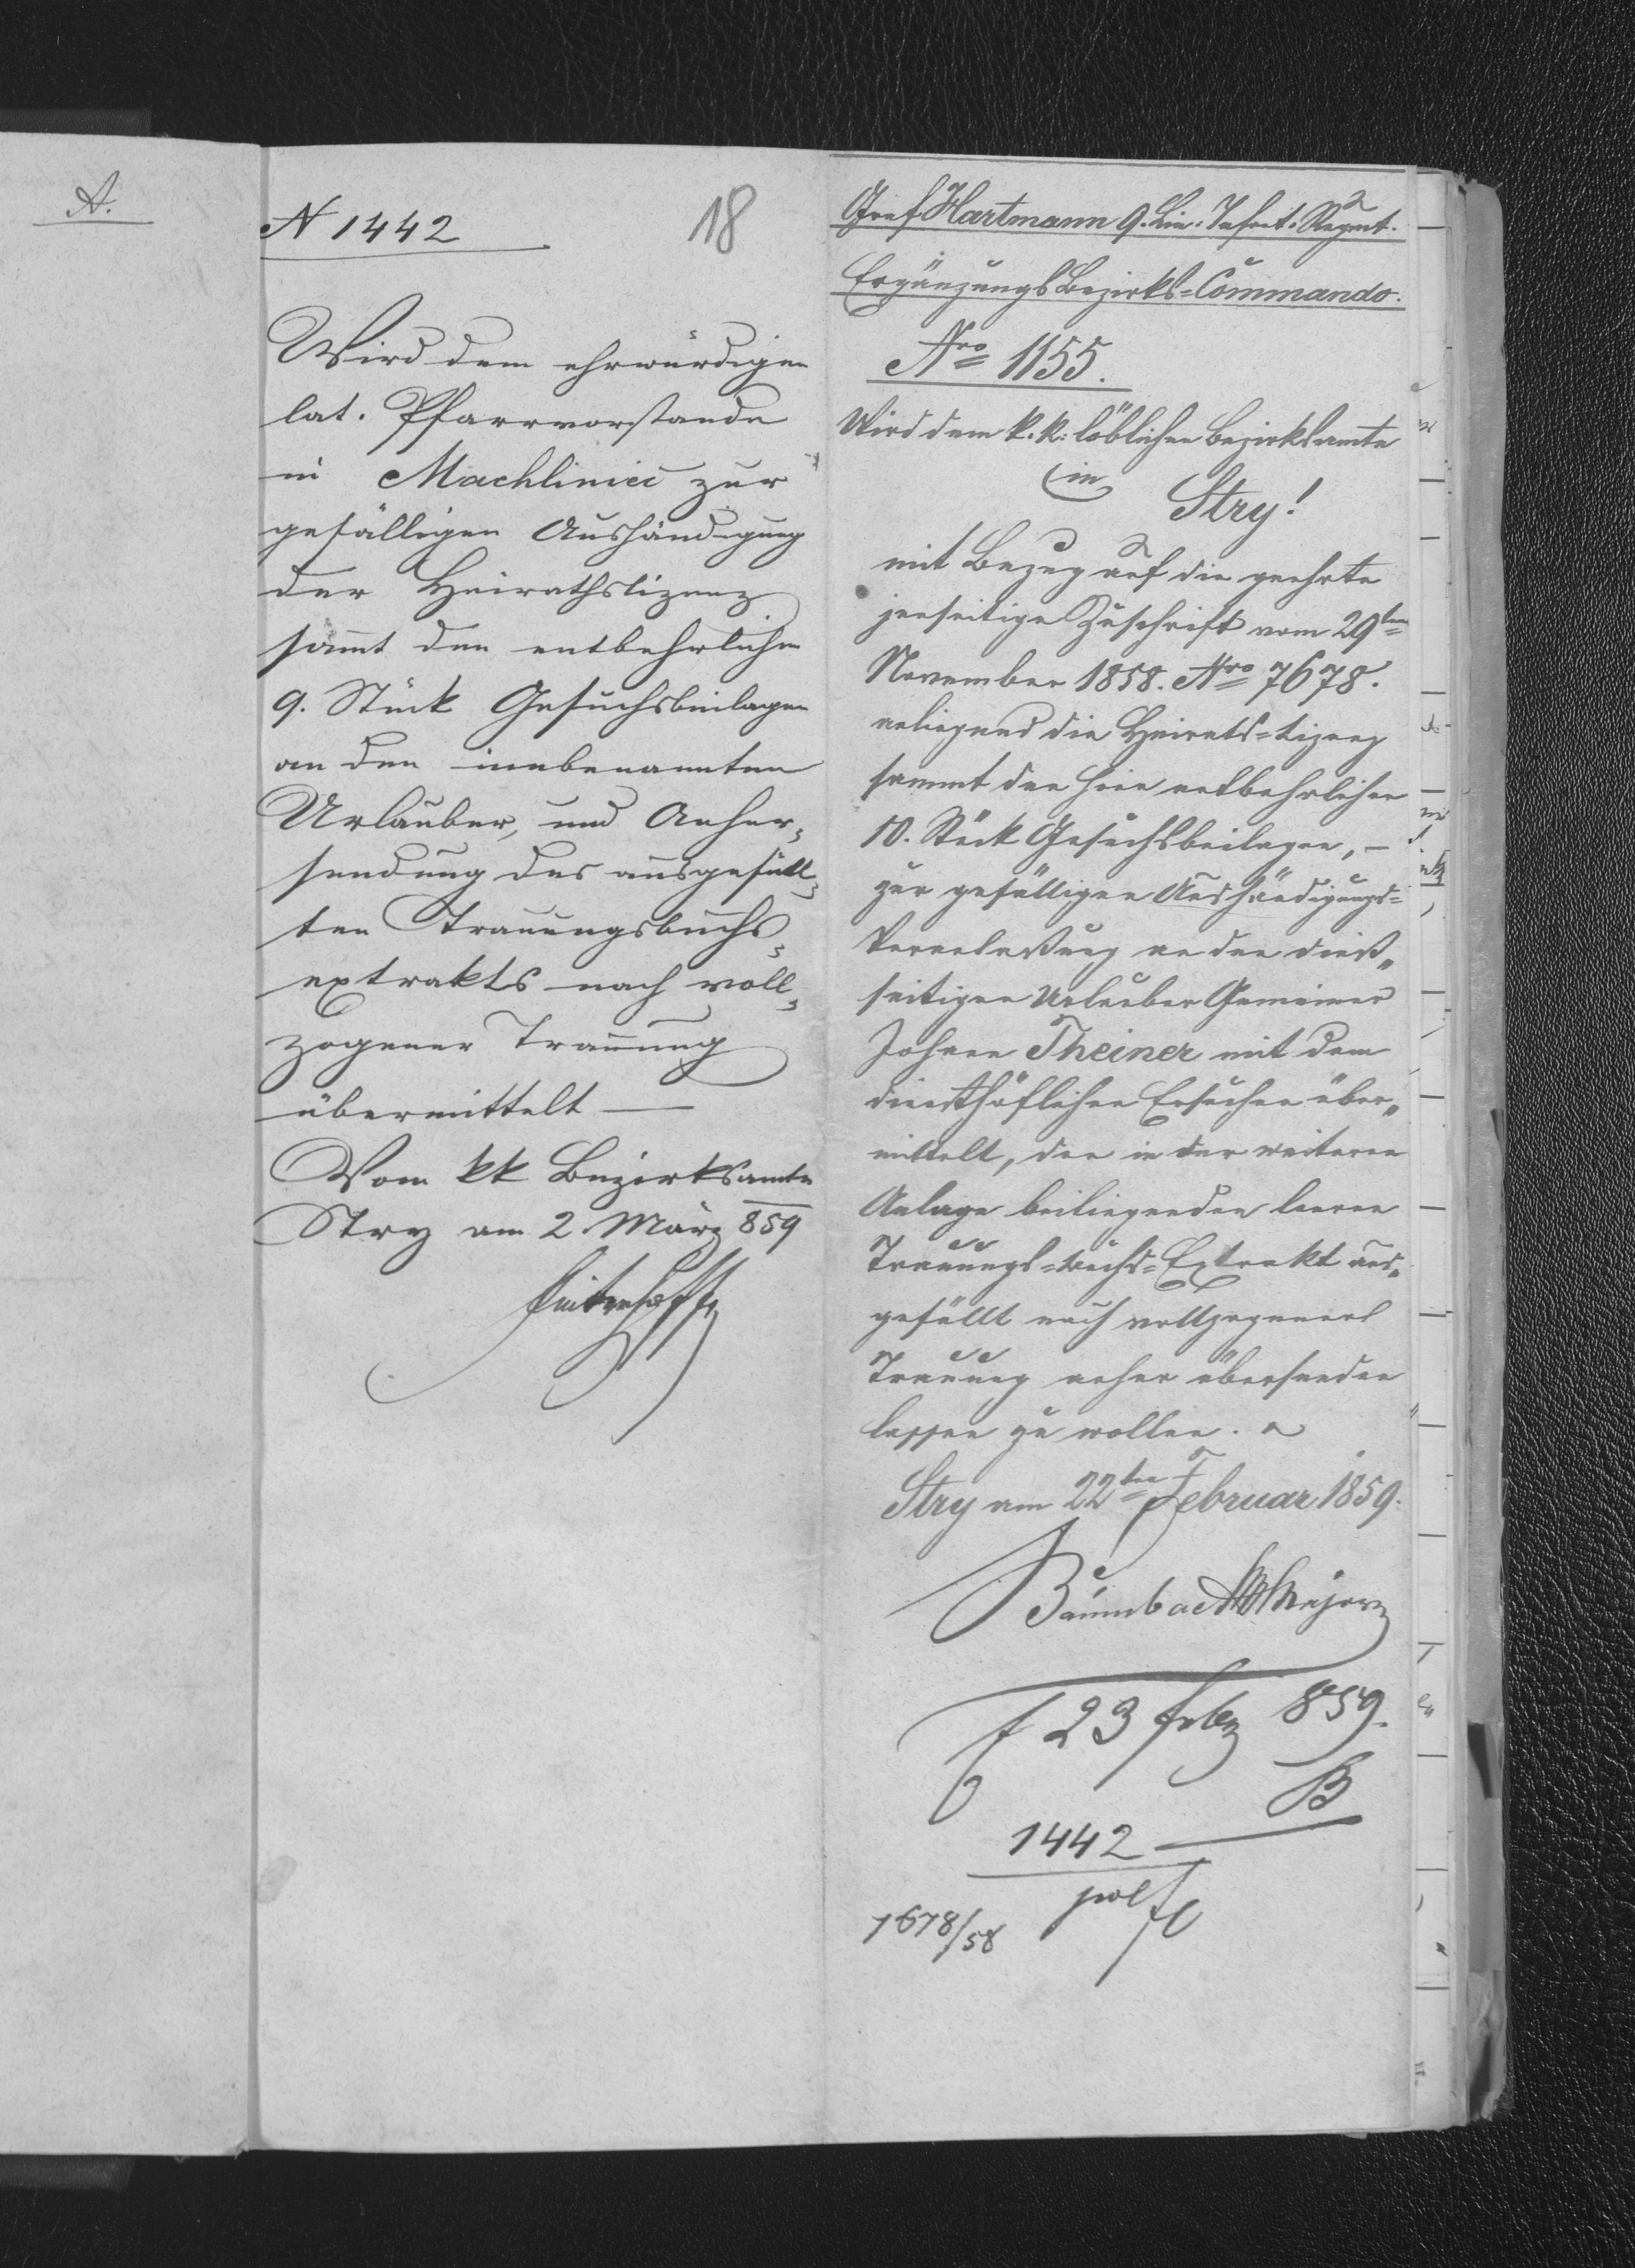 A.
N 1442
18
Wird dem ehrwürdigen
lat. Pfarrvorstande
in Machliniec zur
gefälligen Aushändigung
der Heirathslizenz
sammt den entbehrlichen
9. Stück Gesuchsbeilagen
an den innbenannten
Urlauber, und Anher-
sendung des ausgefüll-
ten Trauungsbuchs-
extrakts nach voll-
zogener Trauung
übermittelt —
Vom kk Bezirksamte
Stry am 2 März 859
Graf Hartmann 9. Lin: Infant: Regmt.
Ergänzungs Bezirks=Commando.
Nro 1155.
Wird dem k. k: löblichen Bezirksamte
in
Stry!
mit Bezug auf die geehrte
jenseitige Zuschrift vom 29ten
November 1858. Nro 7678.
anliegend die Heirats=Lizenz
sammt den hier entbehrlichen
10. Stück Gesuchsbeilagen, –
zur gefälligen Aushändigungs=
Veranlaßung an den dieß„
seitigen Urlauber Gemeiner
Johann Theiner mit dem
diensthöflichen Ersuchen über„
mittelt, den in der weiteren
Anlage beiliegenden leeren
Trauungs=buchs=Extrakt aus„
gefüllt nach vollzogener
Trauung anher übersenden
lassen zu wollen.
Stry am 22ten Februar 1859.
Baumbach Major
23 Febr 859.
1442
pol
7678/58